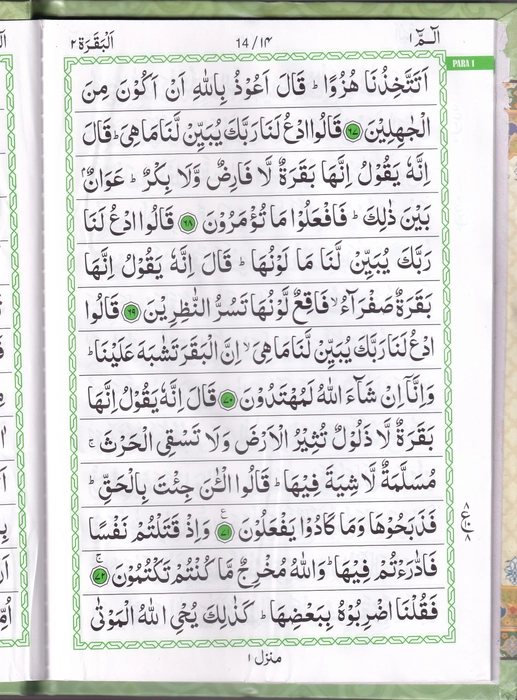 الٓمّٓ ١
14/١٤
اَلْبَقَرَة ٢
PARA 1
اَتَتَّخِذُنَا هُزُوًا ؕ قَالَ اَعُوْذُ بِاللّٰهِ اَنْ اَكُوْنَ مِنَ
الْجٰهِلِيْنَ ﴿۶۷﴾ قَالُوا ادْعُ لَنَا رَبَّكَ يُبَيِّنْ لَّنَا مَا هِيَ ؕ قَالَ
اِنَّهٗ يَقُوْلُ اِنَّهَا بَقَرَةٌ لَّا فَارِضٌ وَّلَا بِكْرٌ ؕ عَوَانٌۢ
بَيْنَ ذٰلِكَ ؕ فَافْعَلُوْا مَا تُؤْمَرُوْنَ ﴿۶۸﴾ قَالُوا ادْعُ لَنَا
رَبَّكَ يُبَيِّنْ لَّنَا مَا لَوْنُهَا ؕ قَالَ اِنَّهٗ يَقُوْلُ اِنَّهَا
بَقَرَةٌ صَفْرَآءُ ۙ فَاقِعٌ لَّوْنُهَا تَسُرُّ النّٰظِرِيْنَ ﴿۶۹﴾ قَالُوا
ادْعُ لَنَا رَبَّكَ يُبَيِّنْ لَّنَا مَا هِيَ ۙ اِنَّ الْبَقَرَ تَشٰبَهَ عَلَيْنَا ؕ
وَاِنَّاۤ اِنْ شَآءَ اللّٰهُ لَمُهْتَدُوْنَ ﴿۷۰﴾ قَالَ اِنَّهٗ يَقُوْلُ اِنَّهَا
بَقَرَةٌ لَّا ذَلُوْلٌ تُثِيْرُ الْاَرْضَ وَلَا تَسْقِي الْحَرْثَ ۚ
مُسَلَّمَةٌ لَّا شِيَةَ فِيْهَا ؕ قَالُوا الْـٰٔنَ جِئْتَ بِالْحَقِّ ؕ
فَذَبَحُوْهَا وَمَا كَادُوْا يَفْعَلُوْنَ ﴿۷۱﴾ وَاِذْ قَتَلْتُمْ نَفْسًا
فَادّٰرَءْتُمْ فِيْهَا ؕ وَاللّٰهُ مُخْرِجٌ مَّا كُنْتُمْ تَكْتُمُوْنَ ﴿۷۲﴾ۚ
فَقُلْنَا اضْرِبُوْهُ بِبَعْضِهَا ؕ كَذٰلِكَ يُحْيِ اللّٰهُ الْمَوْتٰى
منزل ١